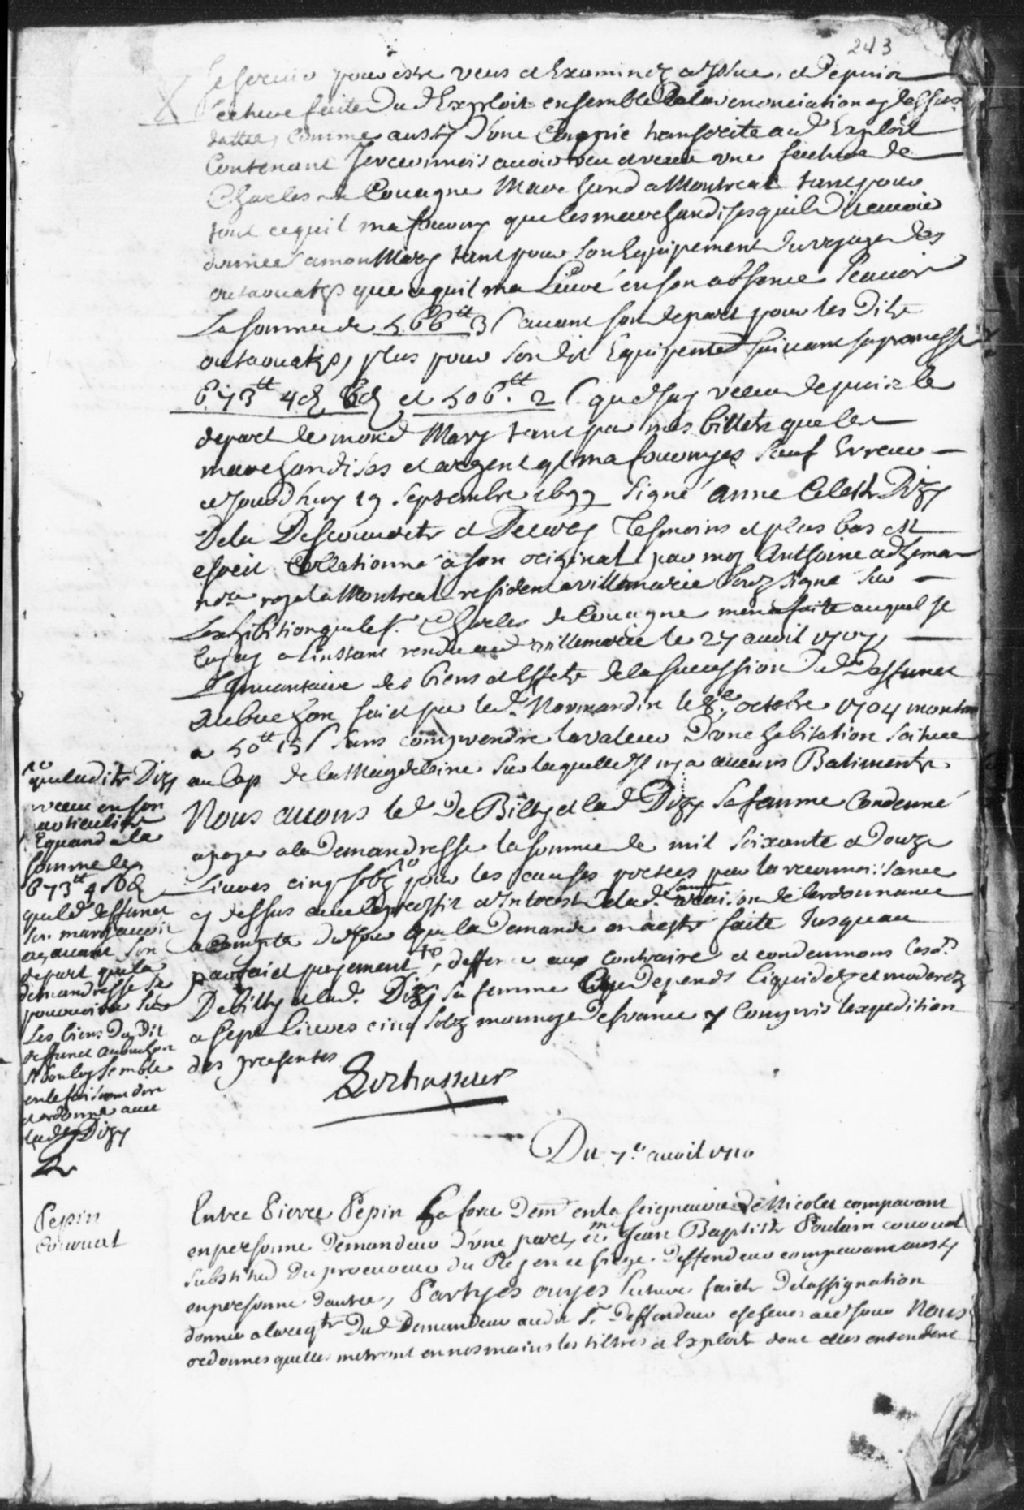 243
pour estre veus et Examinez et depuis
Lecture faite du d. Exploit ensemble de la renonciation cy dessus
dattée, comme aussy d'une Coppie transcrite aud. Exploit
Contenant Je reconnois avoir veu et receu une facture de
Charles de Couagne Marchand a Montreal tant pour
tout ce qu'il ma fourny que les marchandises quil dit avoir
donnée a mon Mary tant pour son Equipement du voyage des
outaouaks que ce quil ma Livré en son absence Scavoir
La somme de 566tt 3s avant son depart pour les Dits
outaouaks, plus pour son dit Equipement suivant sa promesse
673tt 4s 6d et 506tt 2s que J'ay receu depuis le
depart de mond. Mary tant par mes billets que les
marchandises et argent ql ma fournyes Sauf Erreur
ce Jourdhuy 19 Septembre 1697 Signé anne Celeste Dizy
De la Descouverte et Decoros Tesmoins et plus bas est
escrit Collationné a son original par moy Anthoine adhemar
nore royal a Montreal resident a villemarie Soussigné Sur
Lexhibition que le Sr. Charles de Couagne men a faite auquel Je
Lay a linstant rendu aud. villemarie le 27 avril 1707
Linventaire des biens et Effets de la succession dud. Deffunct
aubuchon fait par led. Normandin le 8e octobre 1704 montan
a 50tt 15s sans comprendre la valeur d'une habitation scituée
au Cap de la Magdelaine sur laquelle Il ny a aucuns Batiments
Nous avons led. De Billy et lad. Dizy sa femme Condamné
a payer a la Demandresse la somme de mil soixante et Douze
Livres cinq solz pour les causes portées par la reconnoissance
cy dessus avec
a Compter du Jour que la Demande en a esté faite Jusquau
parfait payement, deffence au contraire et condemnons Lesd.
De billy et lad. Dizy sa femme aux depends Liquidez et moderez
a Sept Livres cinq solz monnoye de france y Compris lexpedition
des presentes
que ladite Dizy
receu en son
particulier
Equand a la
somme de
673tt 4s 6d
que led. deffunct
son mary avoit
avant son
depart que la
demandresse se
pourvoira sur
Les biens du dit
deffunct aubuchon
Si bon luy semble
avec
lad. Dizy
Du 7e avril 1710
Pepin
Courval
Entre Pierre Pepin Laforce Demt en la seigneurie De Nicolet comparant
en personne Demandeur d'une part, et me Jean Baptiste Poulain courval
Substitud du procureur du Roy en ce siege Deffendeur comparant aussy
en personne dautre, Partyes ouyes Lecture faite de lassignation
donnée a la reqte Dud. Demandeur audit Sr. Deffendeur a ce Jour Nous
ordonnes quelles metront en nos mains les tiltres et Exploit dont elles entendent